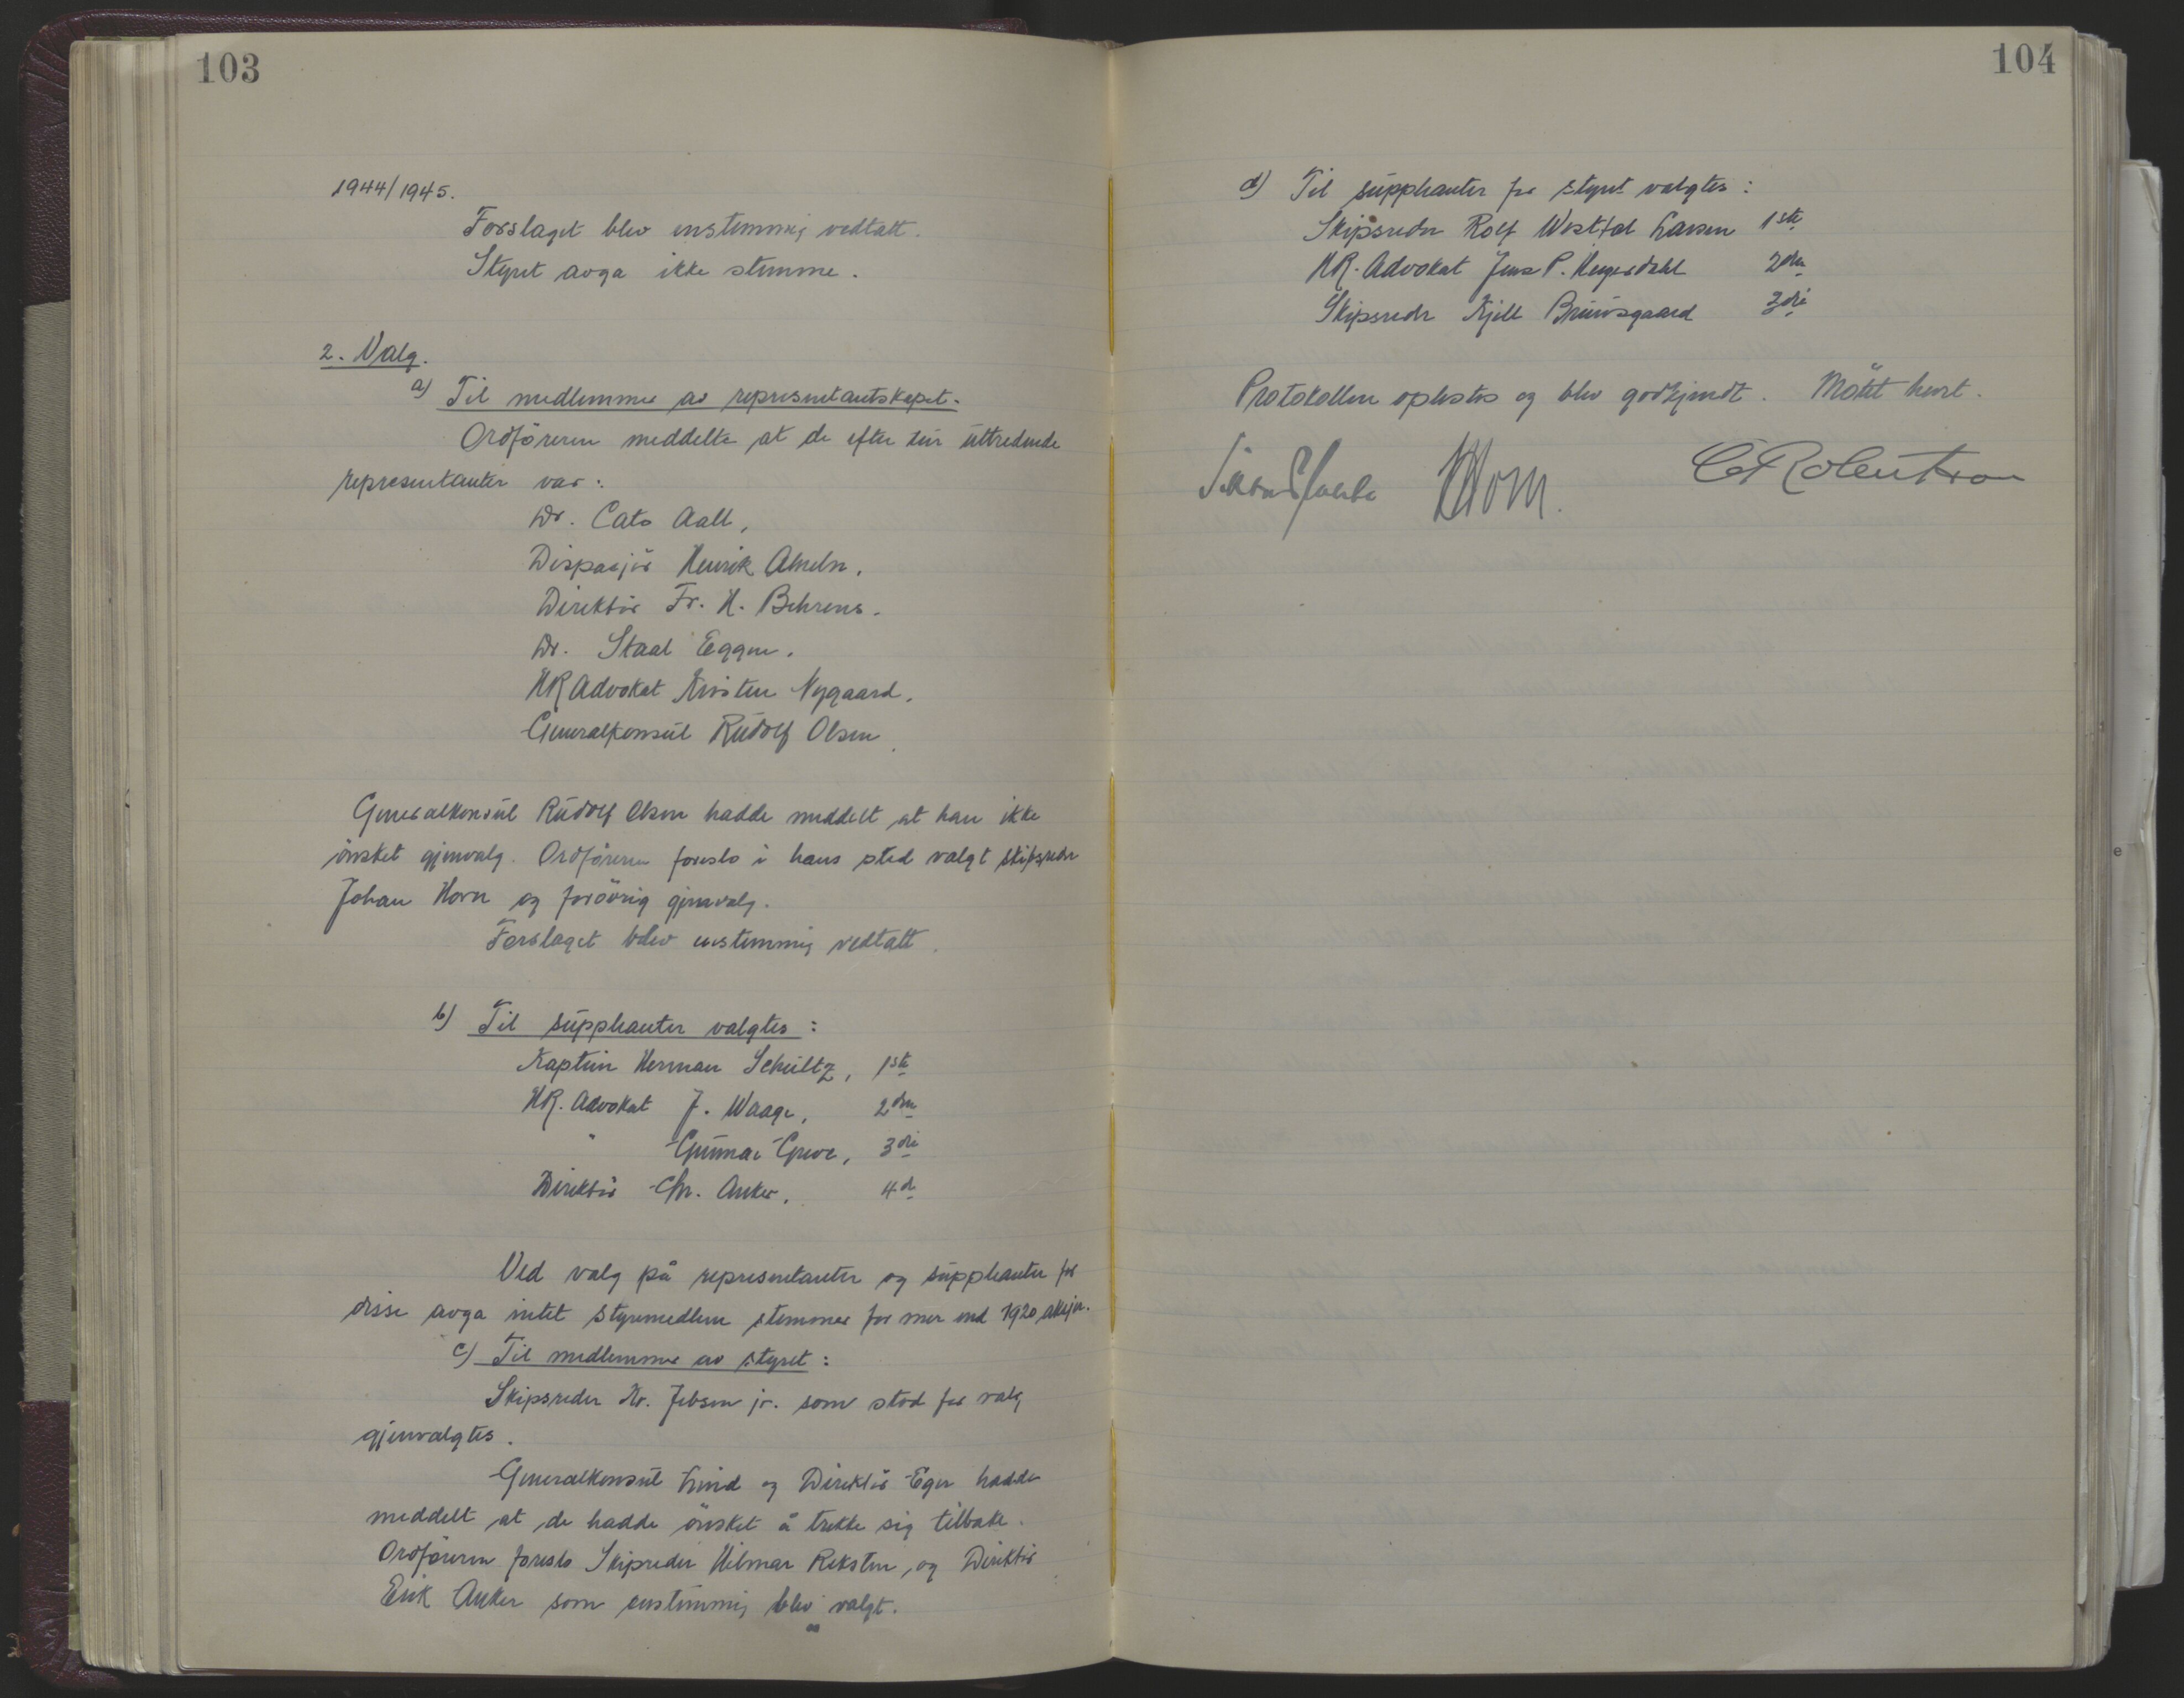 103
1944/1945.
Forslaget blev enstemmig vedtatt.
Styret avga ikke stemme.
2. Valg.
a) Til medlemmer av representantskapet.
Ordföreren meddelte at de efter tur uttredende
representanter var:
Dr. Cato Aall,
Dispasjör Henrik Ameln.
Direktör Fr. H. Behrens.
Dr. Staal Eggen.
HR Advokat Kirsten Nygaard.
Generalkonsul Rudolf Olsen
Generalkonsul Rudolf Olsen hadde meddelt at han ikke
önsket gjenvalg. Ordföreren foreslo i hans sted valgt skipsreder
Johan Horn og forövrig gjenvalg.
Forslaget blev enstemmig vedtatt.
b) Til suppleanter valgtes:
Kaptein Herman Schultz, 1ste
HR. Advokat J. Waage, 2den
" Gunnar Greve, 3die
Direktör Chr. Anker. 4de
Ved valg på representanter og suppleanter for
disse avga intet styremedlem stemmer for mer end 1920 aksjer.
c) Til medlemmer av styret:
Skipsreder Kr. Jebsen jr. som stod for valg
gjenvalgtes.
Generalkonsul Lind og Direktör Eger hadde
meddelt at de hadde önsket å trekke sig tilbake.
Ordföreren foreslo Skipreder Hilmar Reksten, og Direktör
Erik Anker som enstemmig blev valgt.
104
d) Til suppleanter for styret valgtes:
Skipsreder Rolf Westfal Larsen 1ste
HR. Advokat Jens P. Heyerdahl 2den
Skipsreder Kjell Bruusgaard 3die
Protokollen oplestes og blev godkjendt. Mötet hevet.
C Robertson